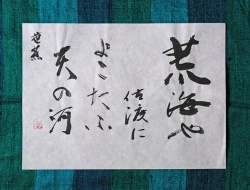 荒海や
佐渡に
よこたふ
天の河
芭蕉